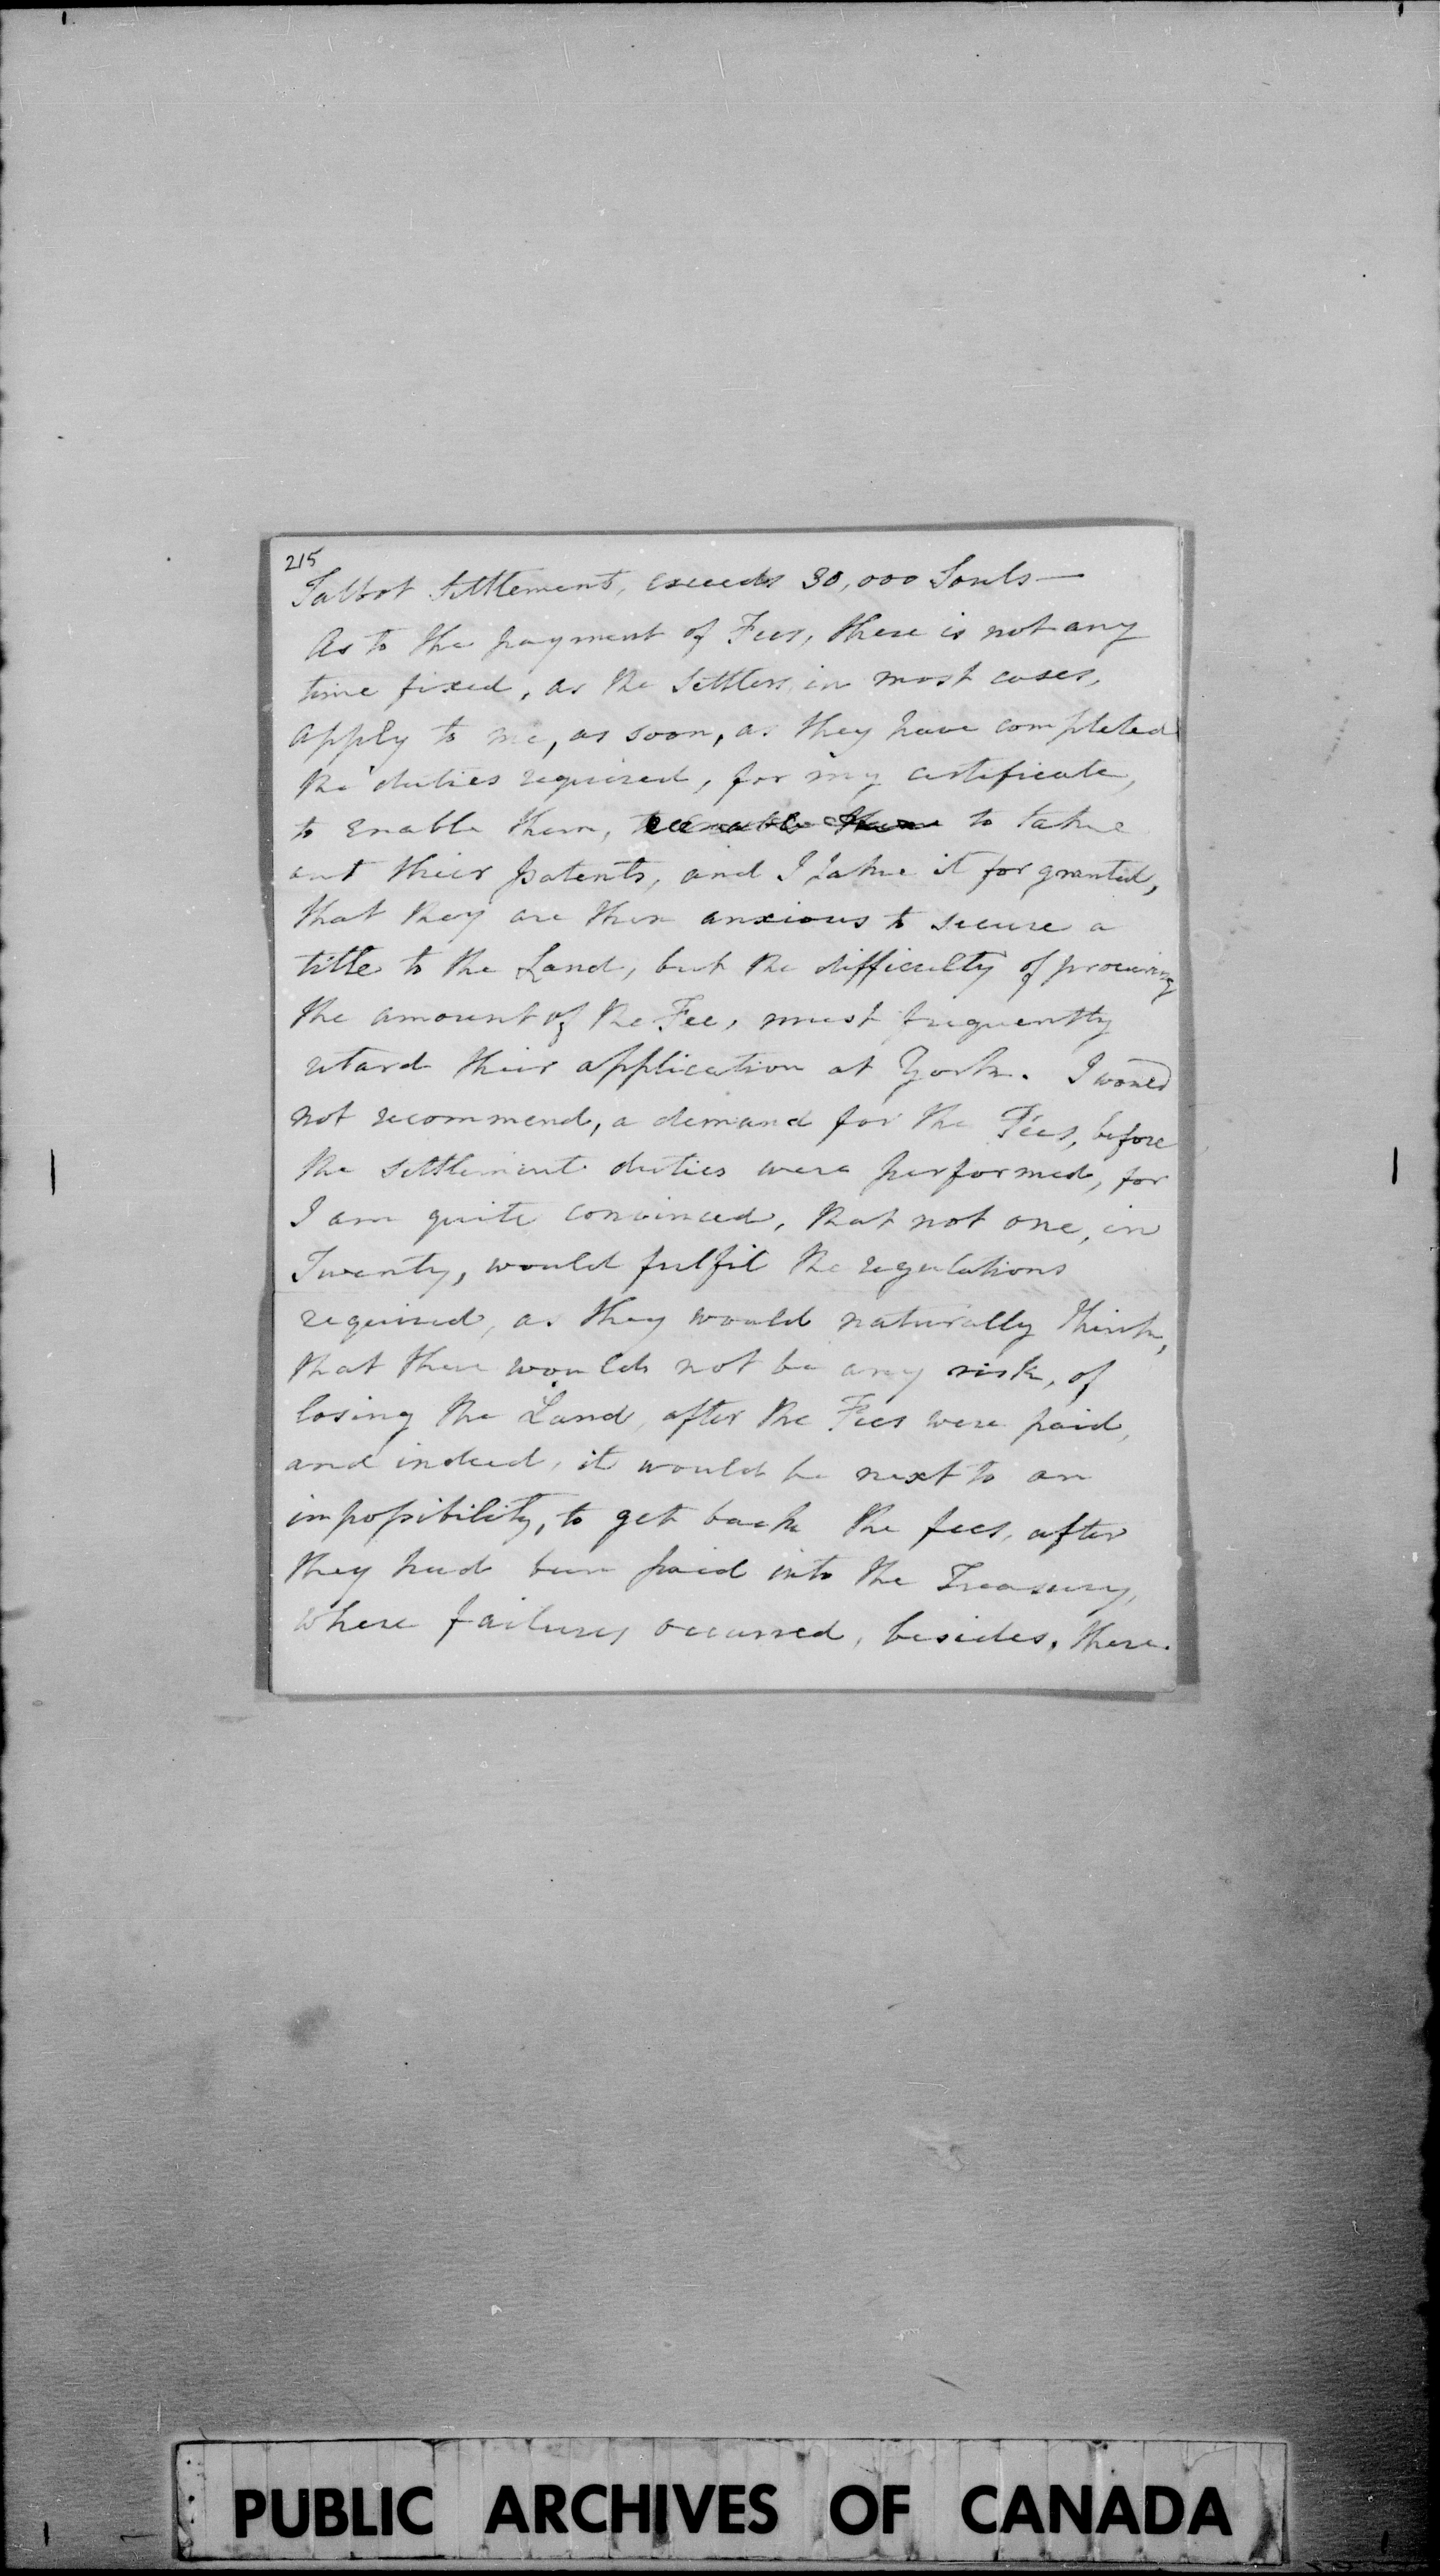 215
Talbot Settlement, exceeds 30,000 Souls—
As to the payment of Fees, there is not any
time fixed, as the Settlers, in most cases,
apply to me, as soon, as they have completed
the duties required, for my certificate,
to enable them, to enable them to take
out their patents, and I take it for granted,
that they are then anxious to secure a
title to the Land, but the difficulty of procuring
the amount of the Fee, must frequently
retard their application at York. I would
not recommend, a demand for the Fees, before
the settlement duties were performed, for
I am quite convinced, that not one, in
Twenty, would fulfil the regulations
required, as they would naturally think,
that there would not be any risk, of
losing the Land, after the Fees were paid,
and indeed, it would be next to an
impossibility, to get back the fees, after
they had been paid into the Treasury,
where failures occurred, besides, there
PUBLIC ARCHIVES OF CANADA